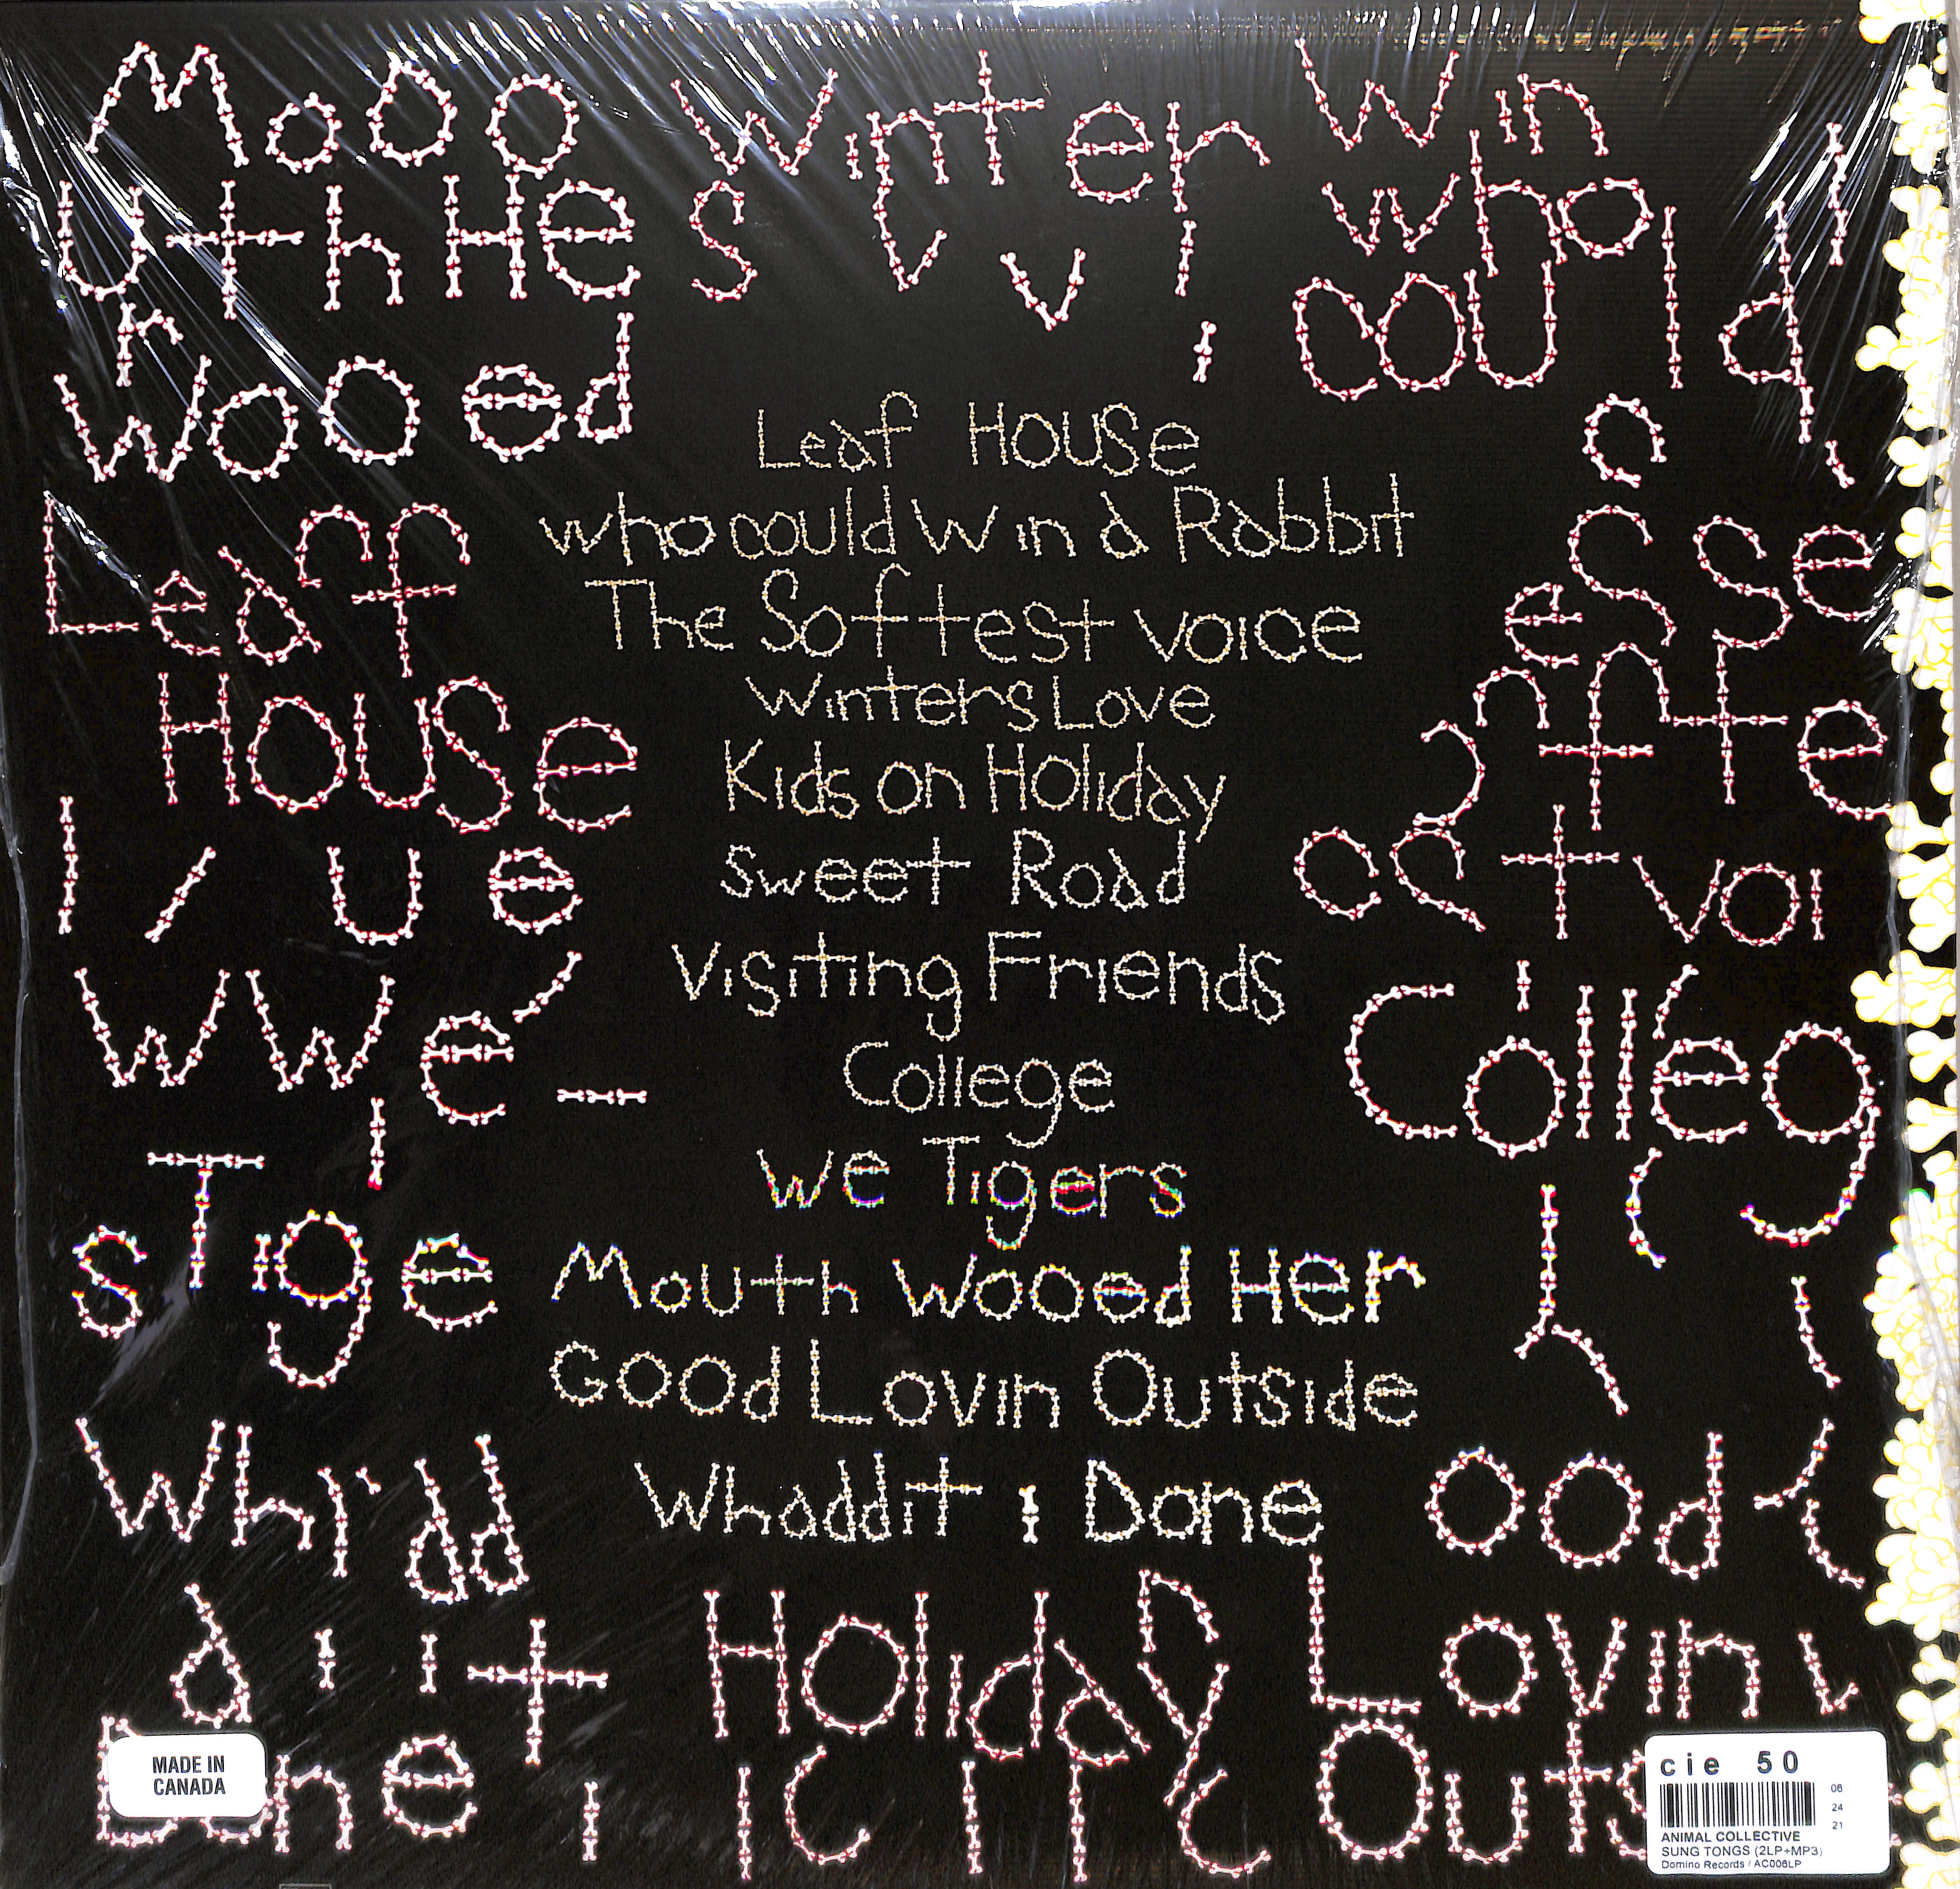 Mooo winter win
uth He s v v i who
i could
wooed
Leaf House
who could Win a Rabbit
The Softest voice
Winters Love
Kids on Holiday
sweet Road
Visiting Friends
College
We Tigers
Mouth Wooed Her
Good Lovin Outside
Whaddit i Done
Leaf
House
ue
wwe
sTige
Whi'dd
a i i t
esse
fte
est voi
Colleg
ood
Holiday Lovin
Outs
MADE IN
CANADA
cie 50
06
24
21
ANIMAL COLLECTIVE
SUNG TONGS (2LP+MP3)
Domino Records / AC006LP